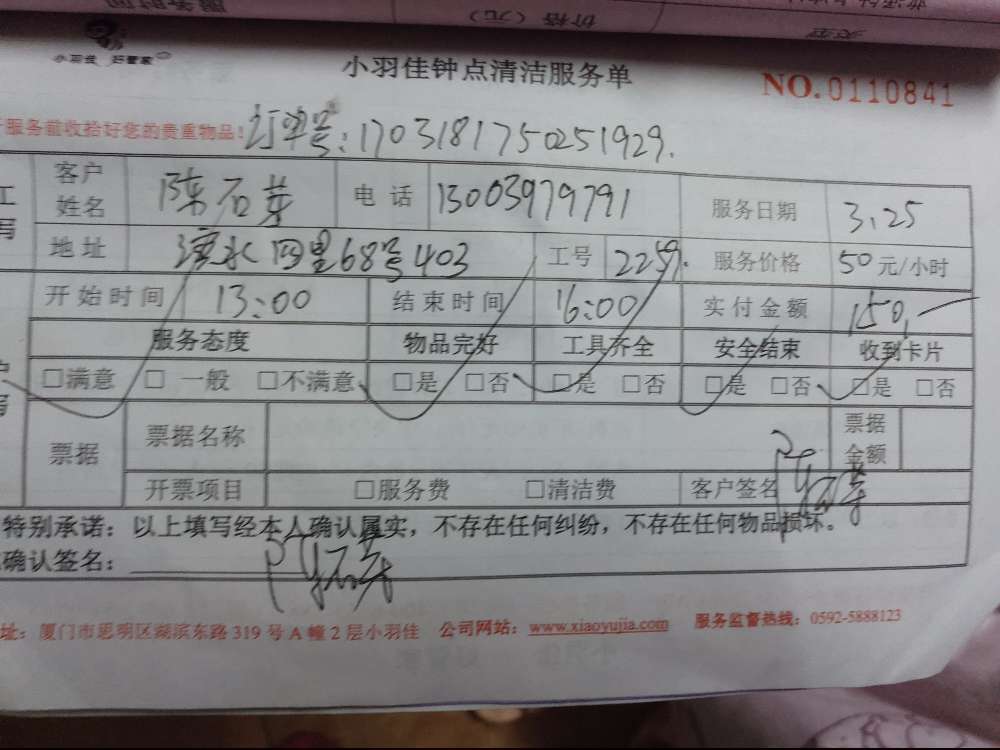 服务时间 价格（元）
小羽佳 好管家
小羽佳钟点清洁服务单 NO.0110841
服务前收拾好您的贵重物品！ 订单号：1703181750251929.
客户姓名 陈石芽 电话 13003979791 服务日期 3.25
地址 网里68号403 工号 2259. 服务价格 50元/小时
开始时间 13:00 结束时间 16:00 实付金额 150,一
服务态度 物品完好 工具齐全 安全结束 收到卡片
□满意 □一般 □不满意 □是 □否 □是 □否 □是 □否 □是 □否
票据 票据名称 票据金额
开票项目 □服务费 □清洁费 客户签名 陈石芽
特别承诺：以上填写经本人确认属实，不存在任何纠纷，不存在任何物品损坏。
确认签名： 陈石芽
址：厦门市思明区湖滨东路319号A幢2层小羽佳 公司网站：www.xiaoyujia.com 服务监督热线：0592-5888123